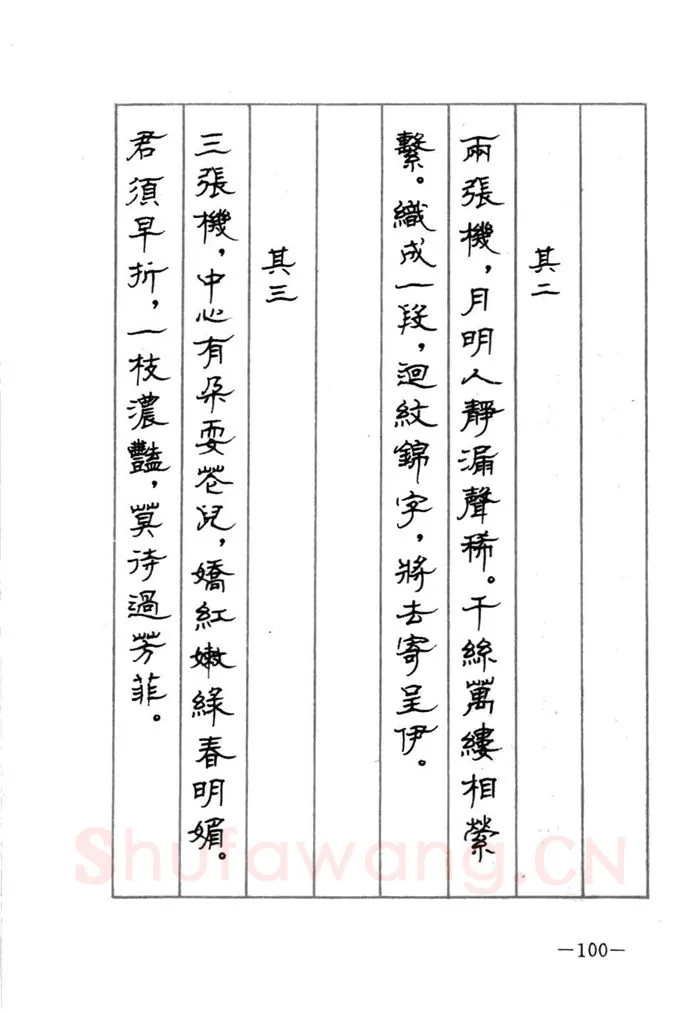 其二
兩張機，月明人靜漏聲稀。千絲萬縷相縈
繫。織成一段，迴紋錦字，將去寄呈伊。
其三
三張機，中心有朵耍花兒，嬌紅嫩綠春明媚。
君須早折，一枝濃豔，莫待過芳菲。
Shufawang.CN
—100—